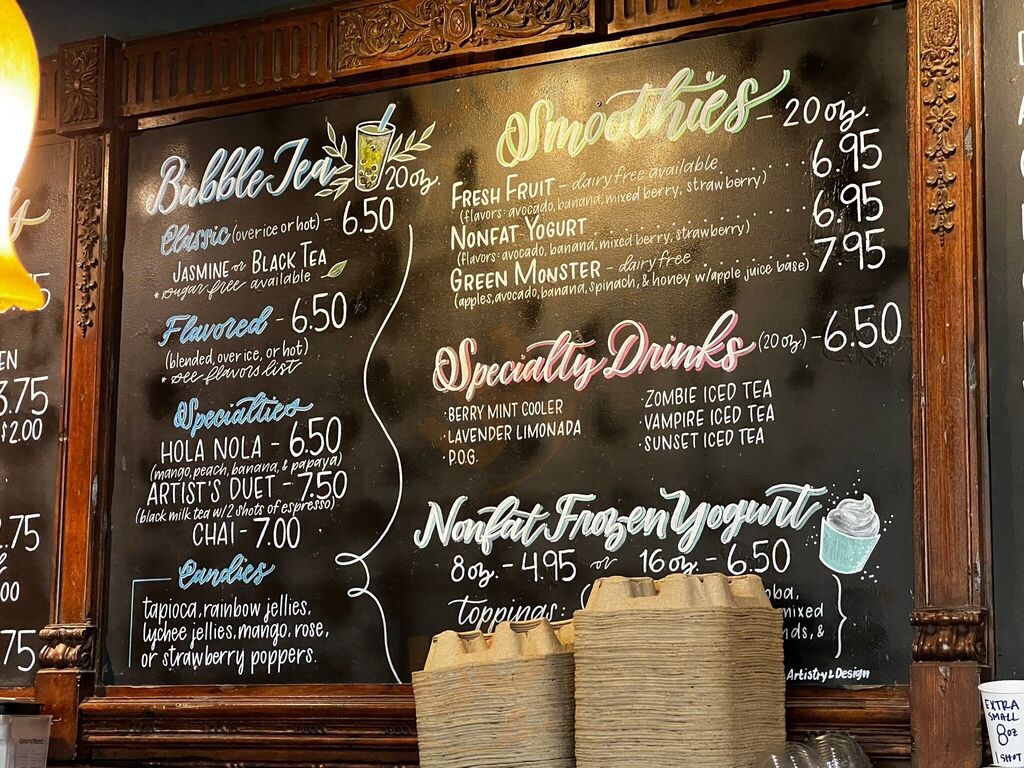 Bubble Tea 20 oz.
Classic (over ice or hot) - 6.50
JASMINE or BLACK TEA
* sugar free available
Flavored - 6.50
(blended, over ice, or hot)
* see flavors list
Specialties
HOLA NOLA - 6.50
(mango, peach, banana, & papaya)
ARTIST'S DUET - 7.50
(black milk tea w/ 2 shots of espresso)
CHAI - 7.00
Candies
tapioca, rainbow jellies,
lychee jellies, mango, rose,
or strawberry poppers.
Smoothies - 20 oz.
FRESH FRUIT - dairy free available ..... 6.95
(flavors: avocado, banana, mixed berry, strawberry)
NONFAT YOGURT ............ 6.95
(flavors: avocado, banana, mixed berry, strawberry)
GREEN MONSTER - dairy free ....... 7.95
(apples, avocado, banana, spinach, & honey w/apple juice base)
Specialty Drinks (20 oz.) - 6.50
· BERRY MINT COOLER
· LAVENDER LIMONADA
· P.O.G.
· ZOMBIE ICED TEA
· VAMPIRE ICED TEA
· SUNSET ICED TEA
Nonfat Frozen Yogurt
8 oz. - 4.95 or 16 oz. - 6.50
Toppings:
Artistry & Design
EN
3.75
$2.00
blendtec
EXTRA
SMALL
8 oz
1 SHOT